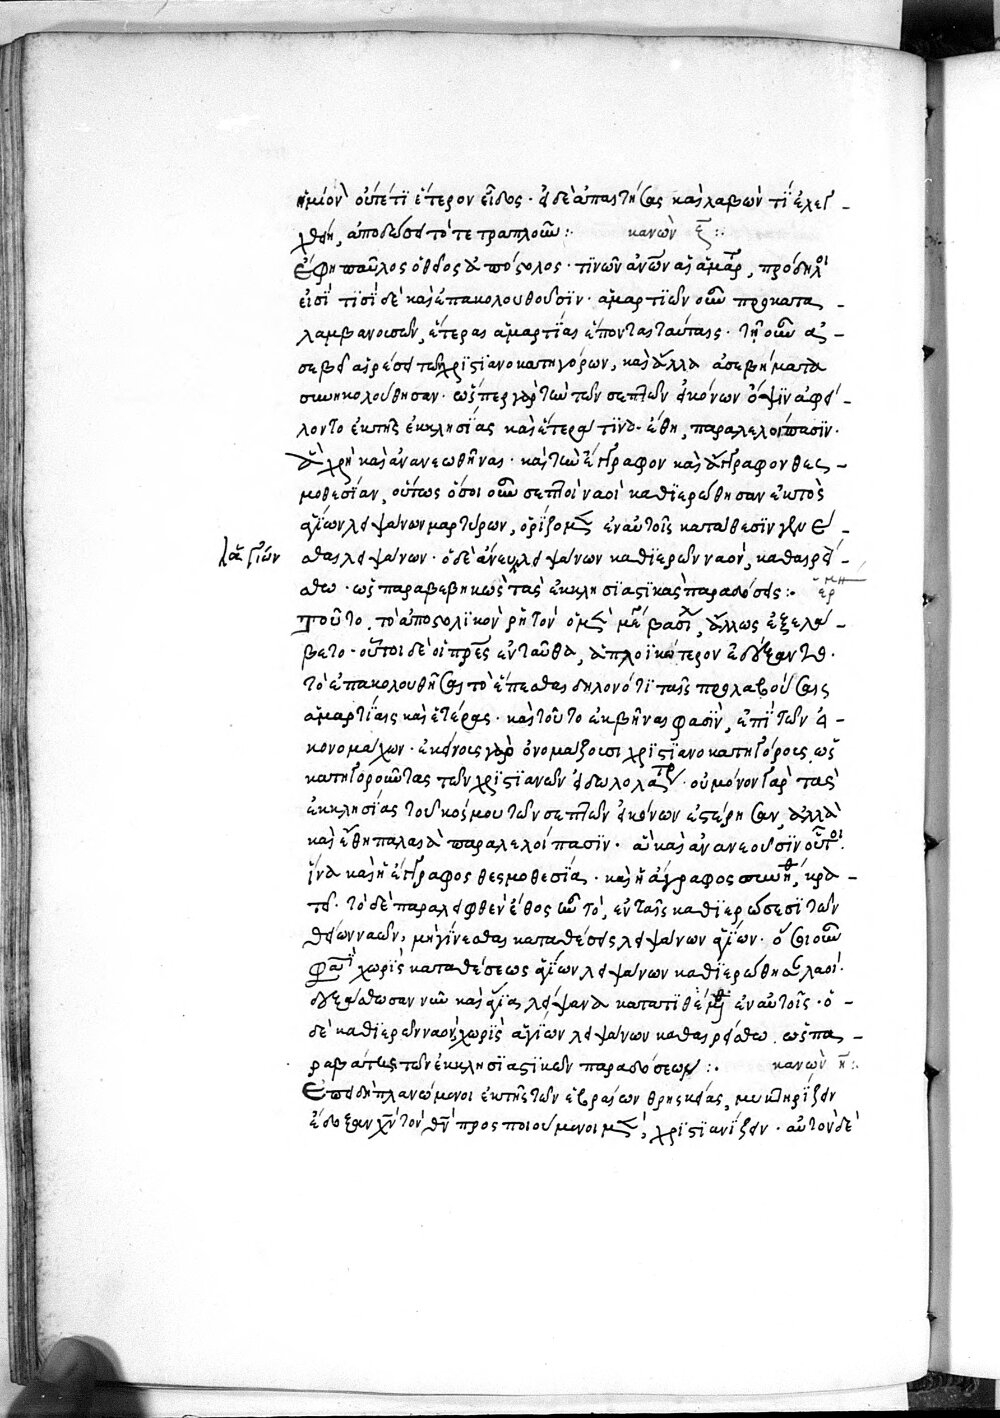 ἡμίον οὐπέτι ἕτερον εἶδος · εἰ δὲ ἀπαιτήσας καὶ λαβὼν τι ἐλεγ-
χθείη, ἀποδώσει τὸ τετραπλοῦν :· κανὼν ζ :·
Ἔφη παῦλος ὁ θεῖος ἀπόστολος · τινῶν ἀνων αἱ ἁμαρ, πρόδηλοί
εἰσί τισὶ δὲ καὶ ἐπακολουθοῦσιν · ἁμαρτιῶν οὖν προκατα-
λαμβανουσῶν, ἕτεραι ἁμαρτίαι ἕπονται ταύταις · τῇ οὖν ἀ-
σεβεῖ αἱρέσει τῶν χριστιανοκατηγόρων, καὶ ἄλλα ἀσεβήματα
συνηκολούθησαν · ὥσπερ γὰρ τὴν τῶν σεπτῶν εἰκόνων ὄψιν ἀφεί-
λοντο ἐκ τῆς ἐκκλησίας καὶ ἕτερα τινὰ ἔθη, παραλελοίπασιν ·
ἃ χρὴ καὶ ἀνανεωθῆναι · κατὰ τὴν ἔγγραφον καὶ ἄγραφον θες-
μοθεσίαν, οὕτως ὅσοι οὖν σεπτοὶ ναοὶ καθιερώθησαν ἐκτὸς
ἁγίων λειψάνων μαρτύρων, ὁρίζομεν ἐν αὐτοῖς κατάθεσιν γενέ-
σθαι λειψάνων · ὁ δὲ ἄνευ λειψάνων καθιερῶν ναὸν, καθαιρεί-
λα ἁγίων
σθω · ὡς παραβεβηκὼς τὰς ἐκκλησιαστικὰς παραδόσεις :· ἑρμη
Τοῦτο τὸ ἀποστολικὸν ῥητὸν ὁ μὲν μέγ βασί, ἄλλως ἐξελά-
βετο · οὗτοι δὲ οἱ πρες ἐνταῦθα, ἁπλοϊκώτερον ἐδέξαντο ·
τὸ ἐπακολουθῆσαι τὸ ἕπεσθαι δηλονότι ταῖς προλαβούσαις
ἁμαρτίαις καὶ ἑτέρας · καὶ τοῦτο ἐκβῆναι φασὶν, ἐπὶ τῶν εἰ-
κονομάχων · ἐκείνοις γὰρ ὀνομάζουσι χριστιανοκατηγόρους ὡς
κατηγοροῦντας τῶν χριστιανῶν εἰδωλολατρ · οὐ μόνον γὰρ τὰς
ἐκκλησίας τοῦ κόσμου τῶν σεπτῶν εἰκόνων ἐστέρησαν, ἀλλὰ
καὶ ἔθη παλαιὰ παραλελοίπασιν · ἃ καὶ ἀνανεοῦσιν οὗτοι ·
ἵνα καὶ ἡ ἔγγραφος θεσμοθεσία · καὶ ἡ ἄγραφος συνηθ, κρα-
τῇ · τὸ δὲ παραλειφθὲν ἔθος ἦν τὸ, ἐν ταῖς καθιερώσεσι τῶν
θείων ναῶν, μὴ γίνεσθαι καταθέσεις λειψάνων ἁγίων · ὅσοι οὖν
φασὶ χωρὶς καταθέσεως ἁγίων λειψάνων καθιερώθησαν ναοί ·
δεξάσθωσαν νῦν καὶ ἅγια λείψανα κατατιθέμενα ἐν αὐτοῖς · ὁ
δὲ καθιερῶν ναὸν, χωρὶς ἁγίων λειψάνων καθαιρείσθω · ὡς πα-
ραβάτης τῶν ἐκκλησιαστικῶν παραδόσεων :· κανὼν η :·
Ἐπειδὴ πλανώμενοι ἐκ τῆς τῶν ἑβραίων θρησκείας, μυκτηρίζειν
ἔδοξαν χν τὸν θν προσποιούμενοι μὲν, χριστιανίζειν · αὐτὸν δὲ